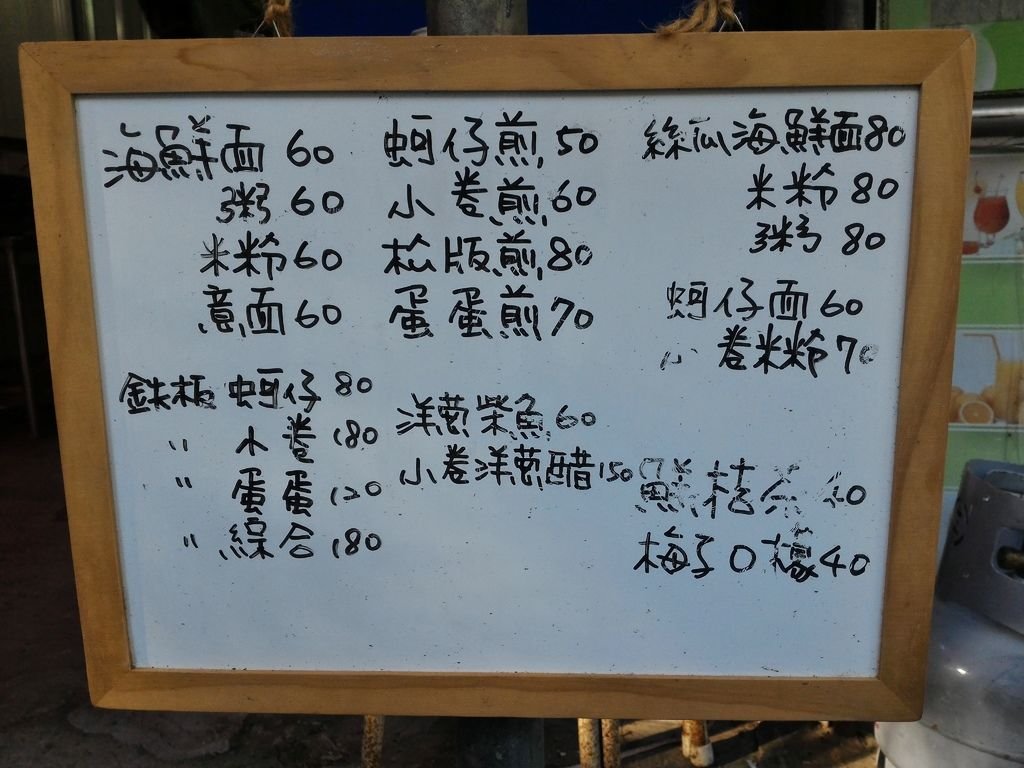 海鮮面 60
粥 60
米粉 60
意面 60
鉄板 蚵仔 80
〃 小卷 180
〃 蛋蛋 120
〃 綜合 180
蚵仔煎 50
小卷煎 60
松版煎 80
蛋蛋煎 70
洋蔥柴魚 60
小卷洋蔥醋 150
絲瓜海鮮面 80
米粉 80
粥 80
蚵仔面 60
小卷米粉 70
鮮桔茶 40
梅子O檬 40